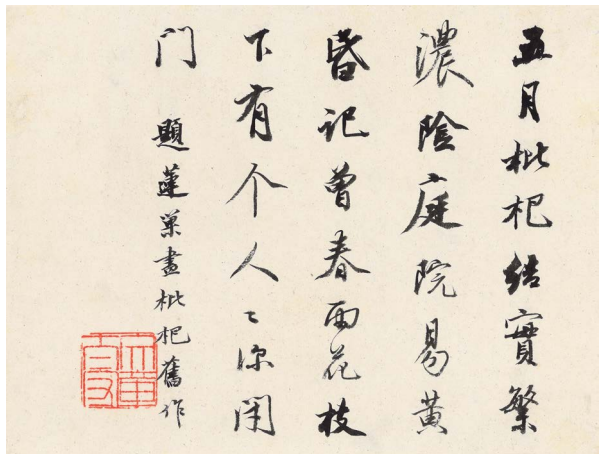 五月枇杷结實繁
濃陰庭院易黄
昏记曾春雨花枝
下有个人〻深闭
门
題蓮巢畫枇杷舊作